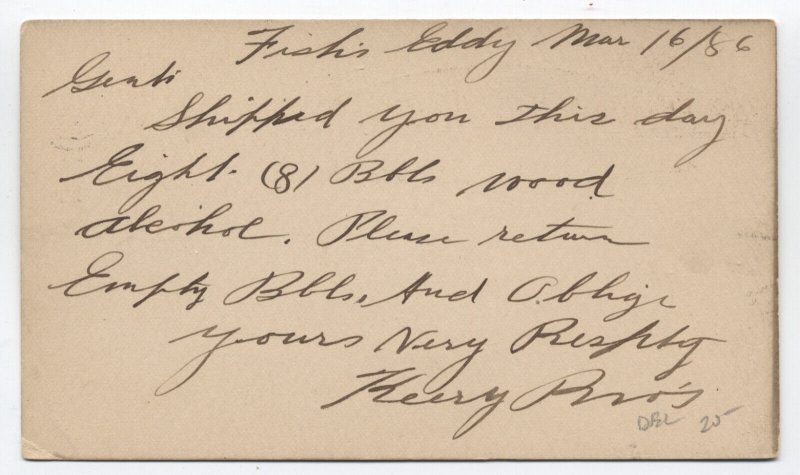 Fish's Eddy Mar 16/86
Gents
Shipped you this day
Eight (8) Bbls wood
alcohol. Please return
Empty Bbls, And Oblige
yours Very Respty
Keery Bro's
DEL 25